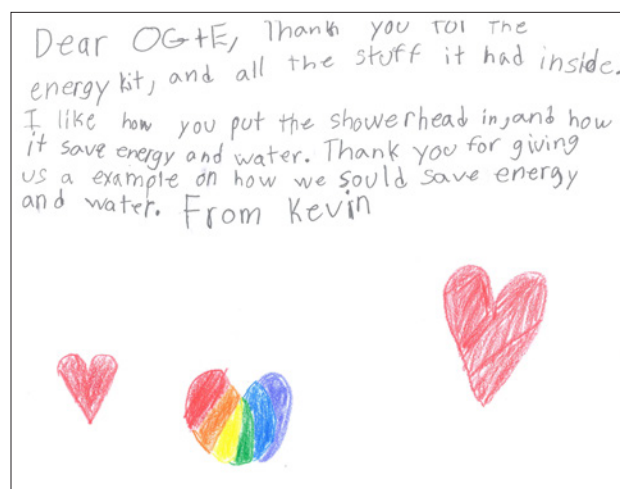 Dear OG+E, Thank you for the
energy kit, and all the stuff it had inside.
I like how you put the showerhead in, and how
it save energy and water. Thank you for giving
us a example on how we sould save energy
and water. From Kevin